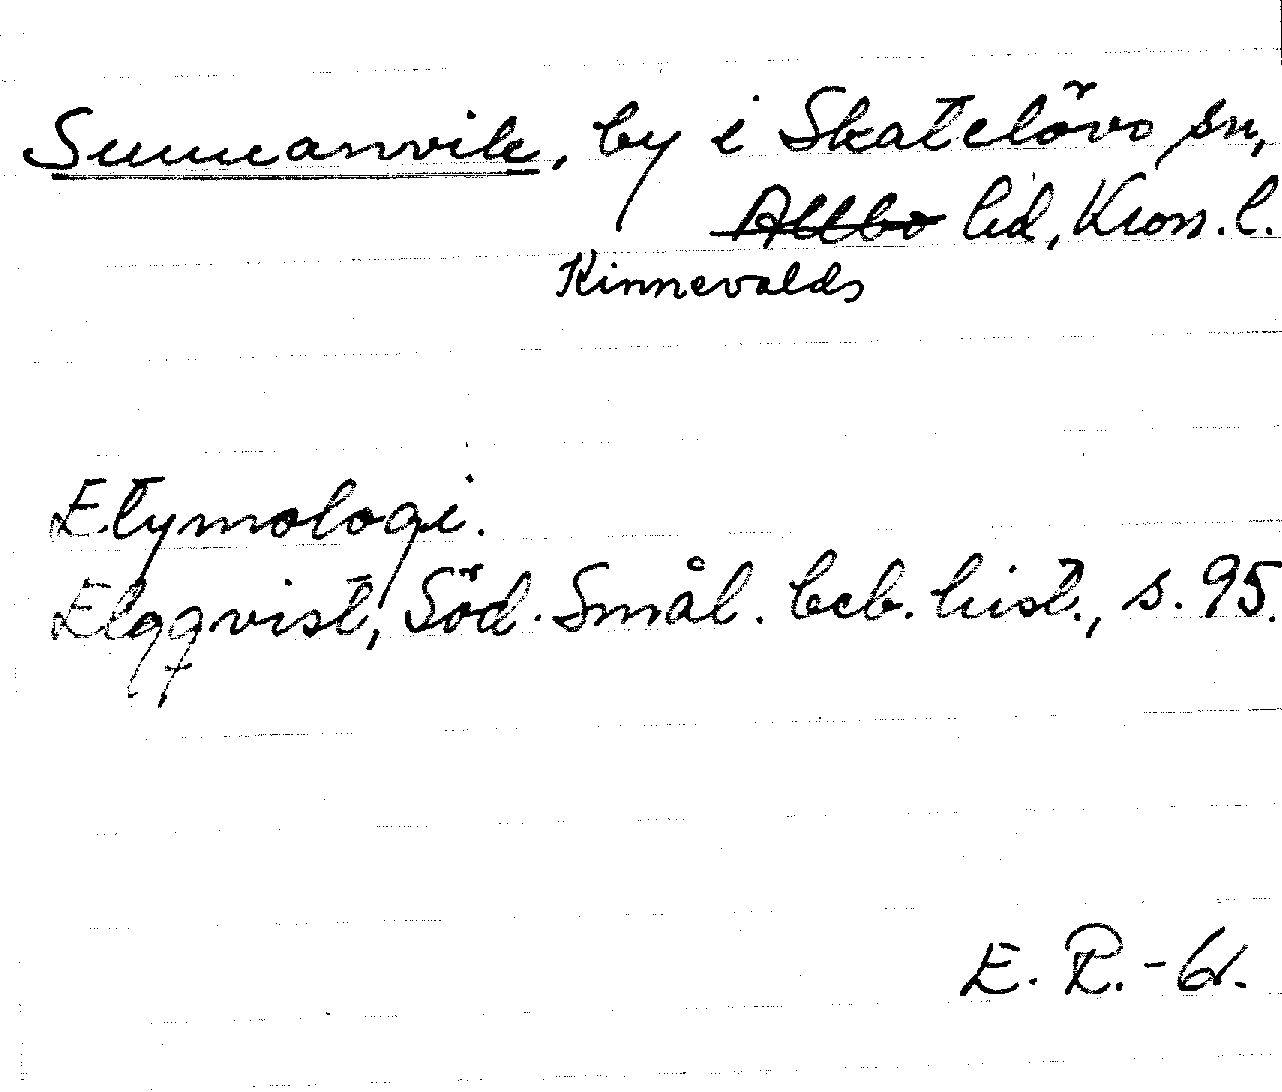 Sunnanvik, by i Skatelövs sn,
Allbo hd, Kron. l.
Kinnevalds
Etymologi.
Elgqvist, Söd. Smål. beb. hist., s. 95.
E. R. - 61.